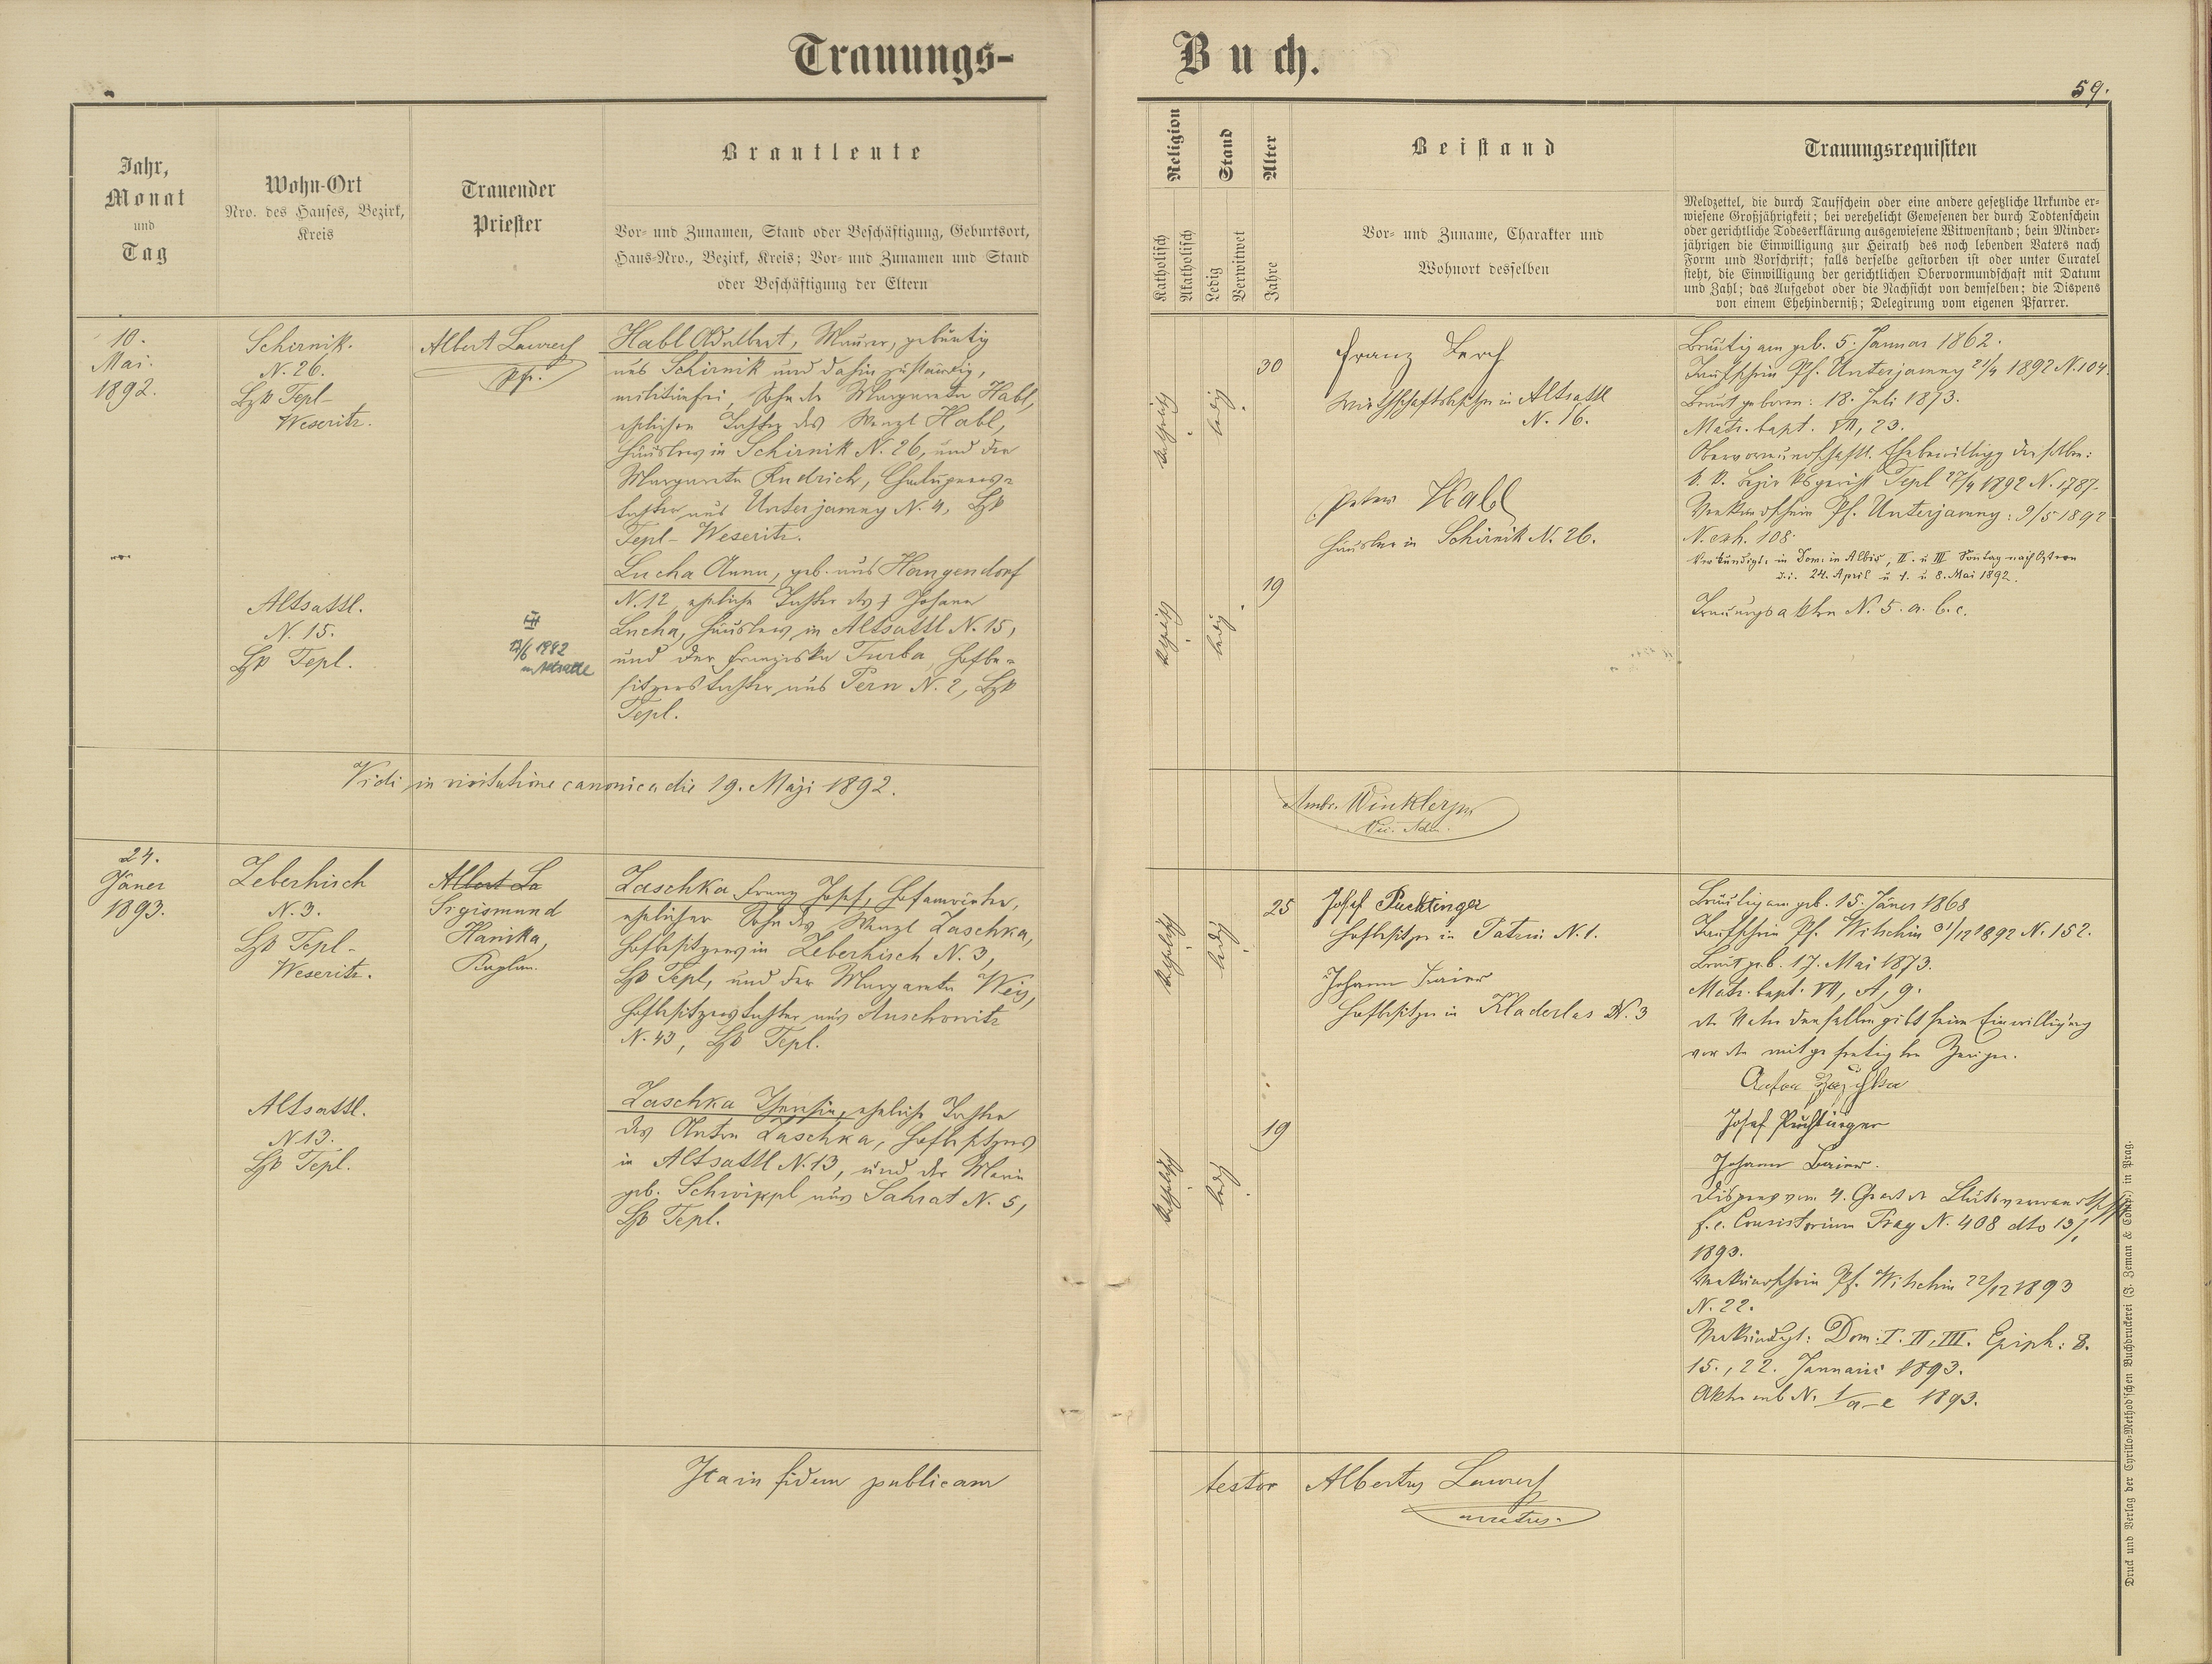 Trauungs-
Buch.
59.
Jahr,
Monat
und
Tag
Wohn-Ort
Nro. des Hauses, Bezirk,
Kreis
Trauender
Priester
Brautleute
Vor- und Zunamen, Stand oder Beschäftigung, Geburtsort,
Haus-Nro., Bezirk, Kreis; Vor- und Zunamen und Stand
oder Beschäftigung der Eltern
Religion
Katholisch
Akatholisch
Stand
Ledig
Verwitwet
Alter
Jahre
Beistand
Vor- und Zuname, Charakter und
Wohnort desselben
Trauungsrequisiten
Meldzettel, die durch Taufschein oder eine andere gesetzliche Urkunde er-
wiesene Großjährigkeit; bei verehelicht Gewesenen der durch Todtenschein
oder gerichtliche Todeserklärung ausgewiesene Witwenstand; bein Minder-
jährigen die Einwilligung zur Heirath des noch lebenden Vaters nach
Form und Vorschrift; falls derselbe gestorben ist oder unter Curatel
steht, die Einwilligung der gerichtlichen Obervormundschaft mit Datum
und Zahl; das Aufgebot oder die Nachsicht von demselben; die Dispens
von einem Ehehinderniß; Delegirung vom eigenen Pfarrer.
10.
Mai
1892.
Schirnik.
N. 26.
Bzk Tepl-
Weseritz.
Albert
Pfr.
Habl Adalbert, Maurer, gebürtig
aus Schirnik und dahin zuständig,
militärfrei, Sohn der Margareta Habl,
ehelichen Tochter des Wenzl Habl,
Häuslers in Schirnik N. 26, und der
Margareta Rudrich, Chaluppners-
tochter aus Unterjamny N. 4, Bzk
Tepl-Weseritz.
Altsattl.
N. 15.
Bzk Tepl.
III
1942
in Altsattl
Lucha Anna, geb. aus Hangendorf
N. 12, eheliche Tochter des † Johann
Lucha, Häuslers in Altsattl N. 15,
und der Franziska Turba, Hofbe-
sitzerstochter aus Pern N. 2, Bzk
Tepl.
katholisch
ledig
30
katholisch
ledig
19
Franz Lerch
Wirthschaftsbesitzer in Altsattl
N. 16.
Peter Habl
Häusler in Schirnik N. 26.
Bräutigam geb. 5. Januar 1862.
Taufschein Pf. Unterjamny 21/4 1892 N. 104.
Braut geboren: 18. Juli 1873.
Matr. bapt. VII, 23.
Obervormundschaftl. Ehebewilligg derselben:
k. k. Bezirksgericht Tepl 27/4 1892 N. 1787.
Verkündschein Pf. Unterjamny: 9/5 1892
N. exh. 108.
Verkündigt: in Dom. in Albis, II. u III Sontag nach Ostern
d. i. 24. April u 1. u 8. Mai 1892.
Trauungsakten N. 5. a. b. c.
Vidi in visitatione canonica die 19. Maji 1892.
Ambr. Winkler
Vic. Adm.
24.
Jäner
1893.
Zeberhisch
N. 3.
Bzk Tepl-
Weseritz.
Albert La
Sigismund
Hanika,
Kaplan.
Zaschka Franz Josef, Hofanwärter,
ehelicher Sohn des Wenzl Zaschka,
Hofbesitzers in Zeberhisch N. 3,
Bzk Tepl, und der Margareta Weis,
Hofbesitzerstochter aus Auschowitz
N. 43, Bzk Tepl.
Altsattl.
N 13.
Bzk Tepl.
Zaschka Theresia, eheliche Tochter
des Anton Zaschka, Hofbesitzers
in Altsattl N. 13, und der Maria
geb. Schwippl aus Sahrat N. 5,
Bzk Tepl.
katholisch
ledig
25
katholisch
ledig
19
Josef Puchtinger
Hofbesitzer in Patrin N. 1.
Johann Baier
Hofbesitzer in Kladerlas N. 3
Bräutigam geb. 15. Jäner 1868
Taufschein Pf. Witschin 31/12 1892 N. 152.
Braut geb. 17. Mai 1873.
Matr. bapt. VII, A, 9.
der Vater derselben gibt seine Einwilligung
vor den mitgefertigten Zeugen.
Anton Zaschka
Josef Puchtinger
Johann Baier.
Dispens vom 4. Grad der Blutsverwandtschft
f. e. Consistorium Prag N. 408 dto 13/1
1893.
Verkündschein Pf. Witschin 22/12 1893
N. 22.
Verkündigt: Dom: I. II, III. Epiph: 8.
15., 22. Januarii 1893.
Akten sub N. 1/a-e 1893.
Ita in fidem publicam
testor Albertus
curatus.
Druck und Verlag der Cyrillo-Method'schen Buchdruckerei (J. Zeman & Comp.) in Prag.